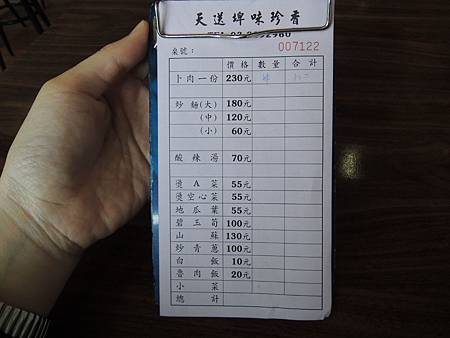 天送埤味珍香
007122
桌號：
價格 數量 合計
卜肉一份 230元
炒麵(大) 180元
(中) 120元
(小) 60元
酸辣湯 70元
燙A菜 55元
燙空心菜 55元
地瓜葉 55元
碧玉筍 100元
山蘇 130元
炒青蔥 100元
白飯 10元
魯肉飯 20元
小菜
總計